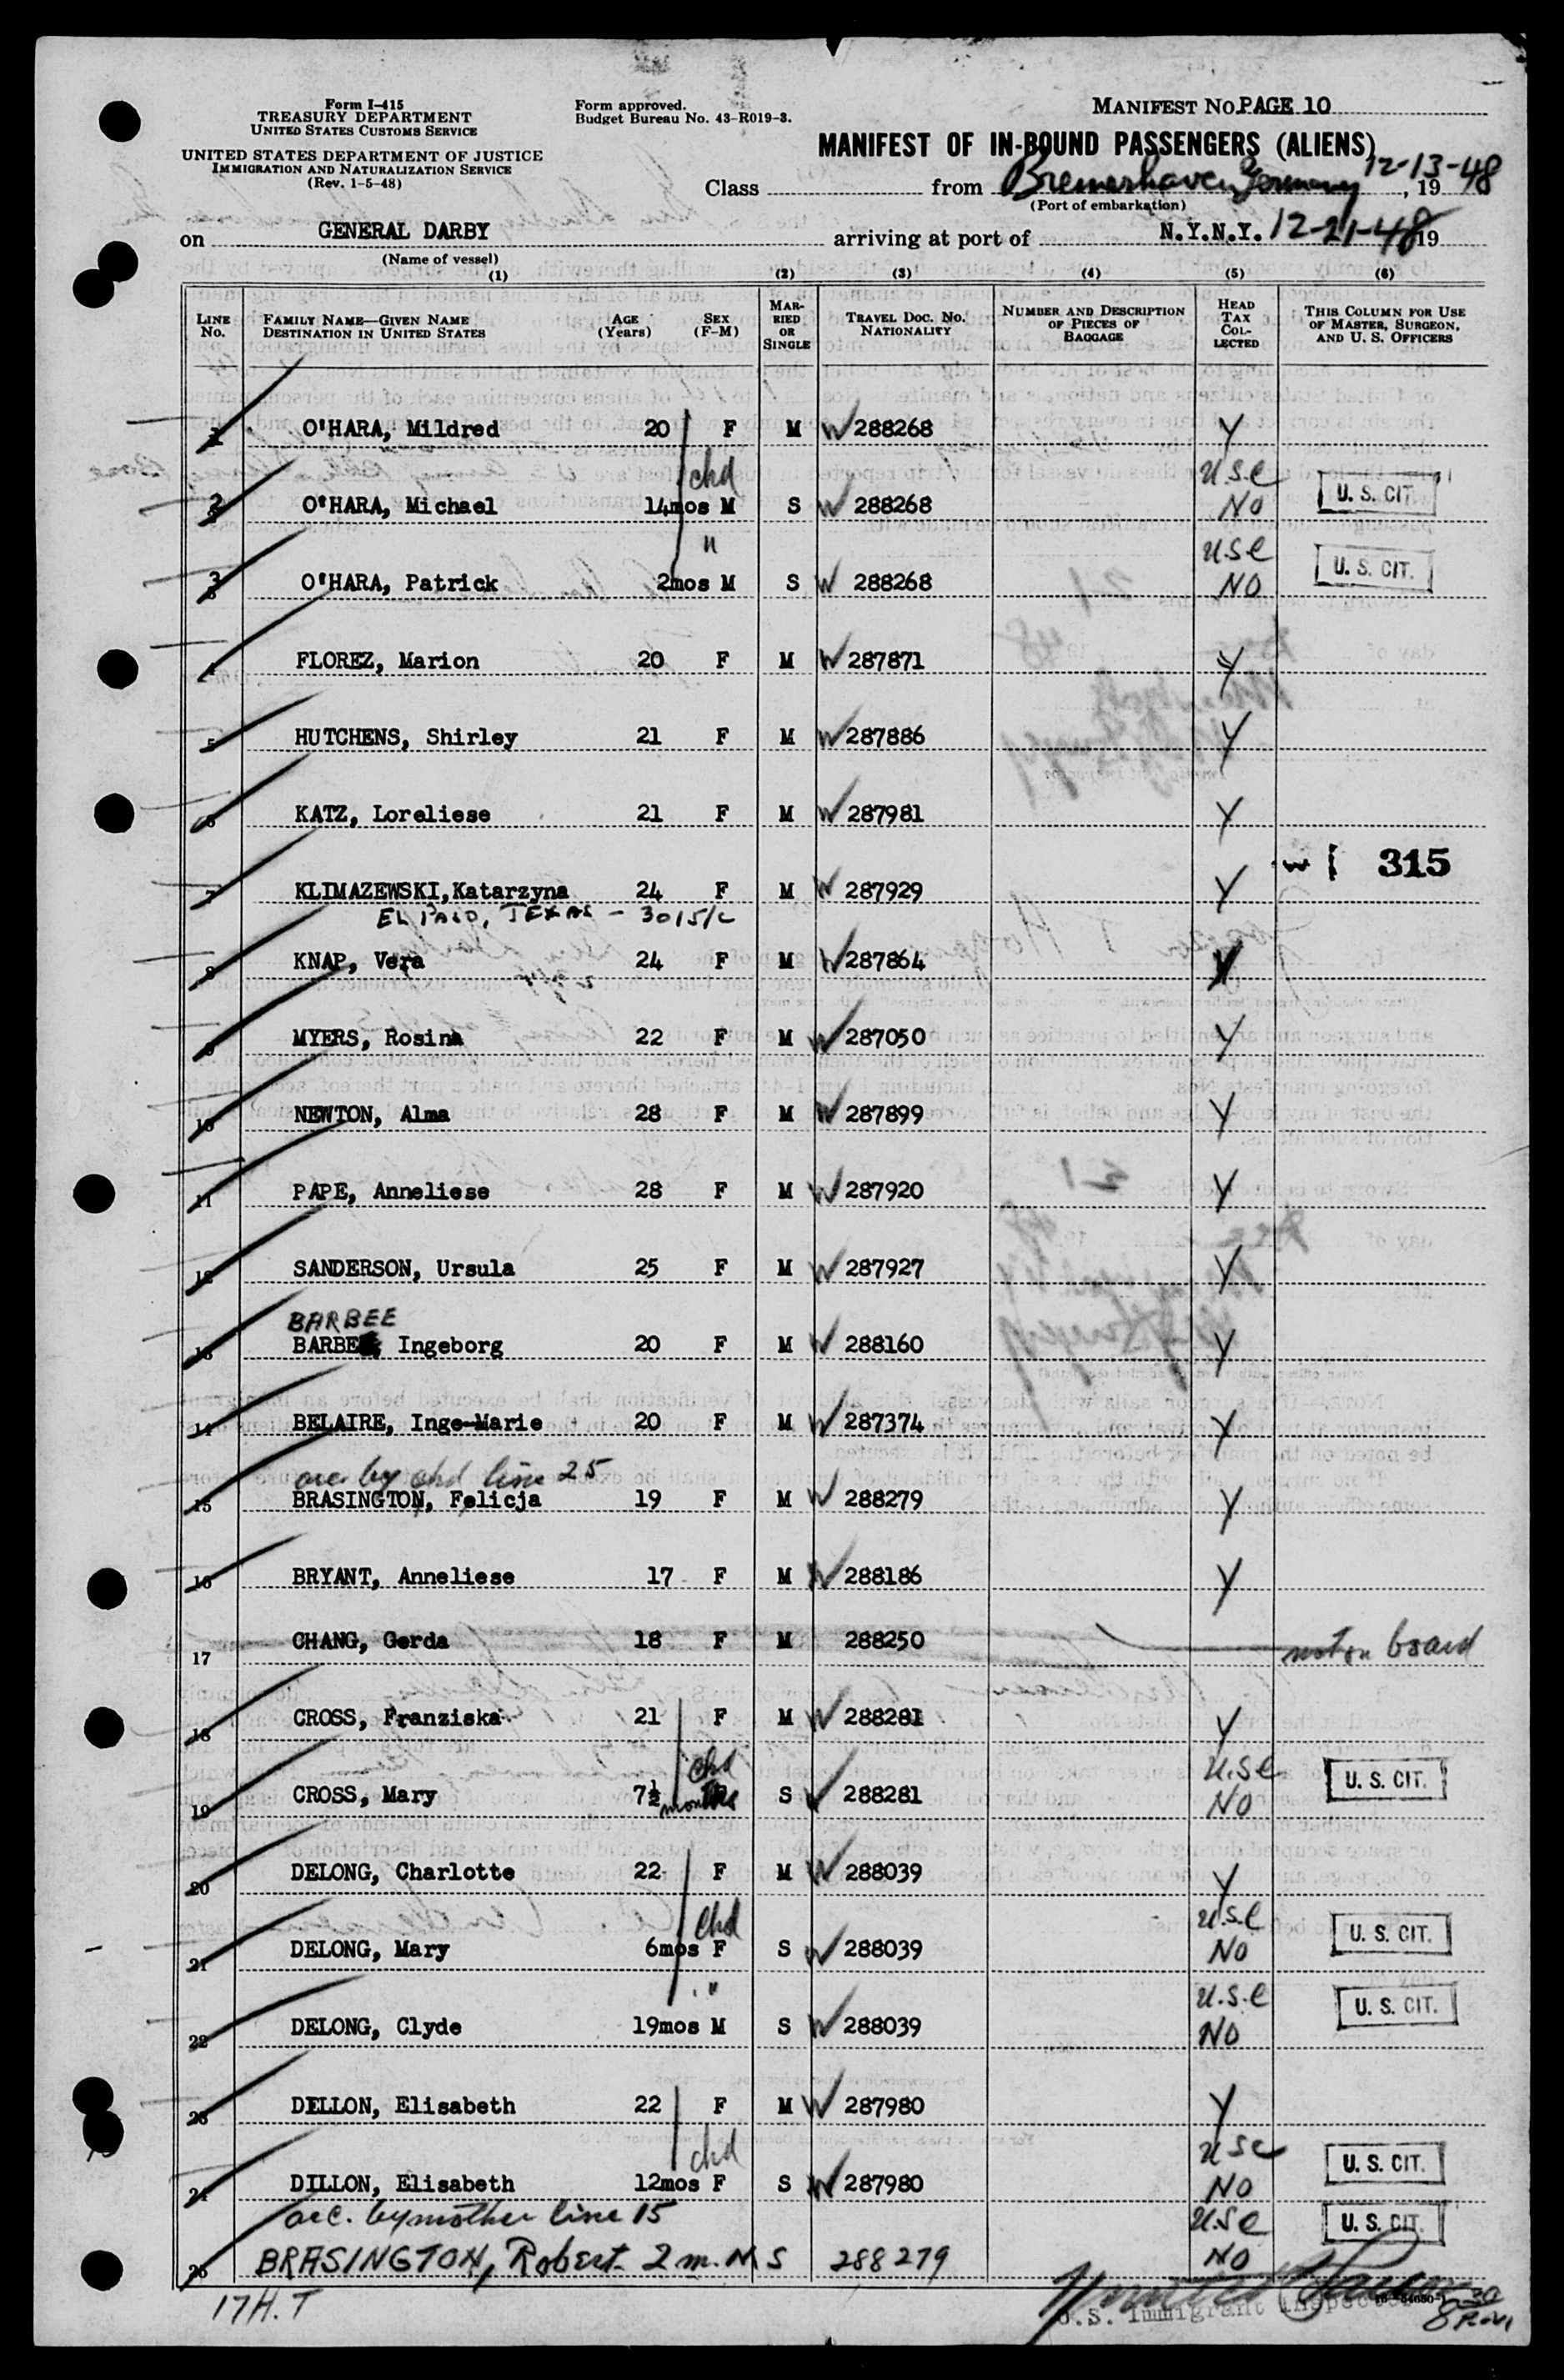 Form I-415
TREASURY DEPARTMENT
UNITED STATES CUSTOMS SERVICE
UNITED STATES DEPARTMENT OF JUSTICE
IMMIGRATION AND NATURALIZATION SERVICE
(Rev. 1-5-48)
Form approved.
Budget Bureau No. 43-R019-3.
MANIFEST NO. PAGE 10
MANIFEST OF IN-BOUND PASSENGERS (ALIENS)
Class from Bremerhaven, Germany 12-13-48, 19
(Port of embarkation)
on GENERAL DARBY arriving at port of N.Y.N.Y. 12-21-48 19
(Name of vessel)
(1) (2) (3) (4) (5) (6)
LINE No. FAMILY NAME—GIVEN NAME DESTINATION IN UNITED STATES AGE (Years) SEX (F-M) MARRIED OR SINGLE TRAVEL DOC. NO. NATIONALITY NUMBER AND DESCRIPTION OF PIECES OF BAGGAGE HEAD TAX COLLECTED THIS COLUMN FOR USE OF MASTER, SURGEON, AND U. S. OFFICERS
1 O'HARA, Mildred 20 F M 288268 Y
chd U.S.C
2 O'HARA, Michael 14mos M S 288268 NO U. S. CIT.
" U.S.C
3 O'HARA, Patrick 2mos M S 288268 NO U. S. CIT.
4 FLOREZ, Marion 20 F M 287871 Y
5 HUTCHENS, Shirley 21 F M 287886 Y
6 KATZ, Loreliese 21 F M 287981 Y
315
7 KLIMAZEWSKI, Katarzyna 24 F M 287929 Y
EL PASO, TEXAS - 3015/c
8 KNAP, Vera 24 F M 287864 Y
9 MYERS, Rosina 22 F M 287050 Y
10 NEWTON, Alma 28 F M 287899 Y
11 PAPE, Anneliese 28 F M 287920 Y
12 SANDERSON, Ursula 25 F M 287927 Y
BARBEE
13 BARBE, Ingeborg 20 F M 288160 Y
14 BELAIRE, Inge-Marie 20 F M 287374 Y
acc. by chd line 25
15 BRASINGTON, Felicja 19 F M 288279 Y
16 BRYANT, Anneliese 17 F M 288186 Y
17 CHANG, Gerda 18 F M 288250 not on board
18 CROSS, Franziska 21 F M 288281 Y
chd U.S.C
19 CROSS, Mary 7½ months S 288281 NO U. S. CIT.
20 DELONG, Charlotte 22 F M 288039 Y
chd U.S.C
21 DELONG, Mary 6mos F S 288039 NO U. S. CIT.
" U.S.C
22 DELONG, Clyde 19mos M S 288039 NO U. S. CIT.
23 DILLON, Elisabeth 22 F M 287980 Y
chd USC
24 DILLON, Elisabeth 12mos F S 287980 NO U. S. CIT.
acc. by mother line 15 U.S.C U. S. CIT.
25 BRASINGTON, Robert 2 m. M S 288279 NO
17 H.T
U.S. Immigrant Inspector